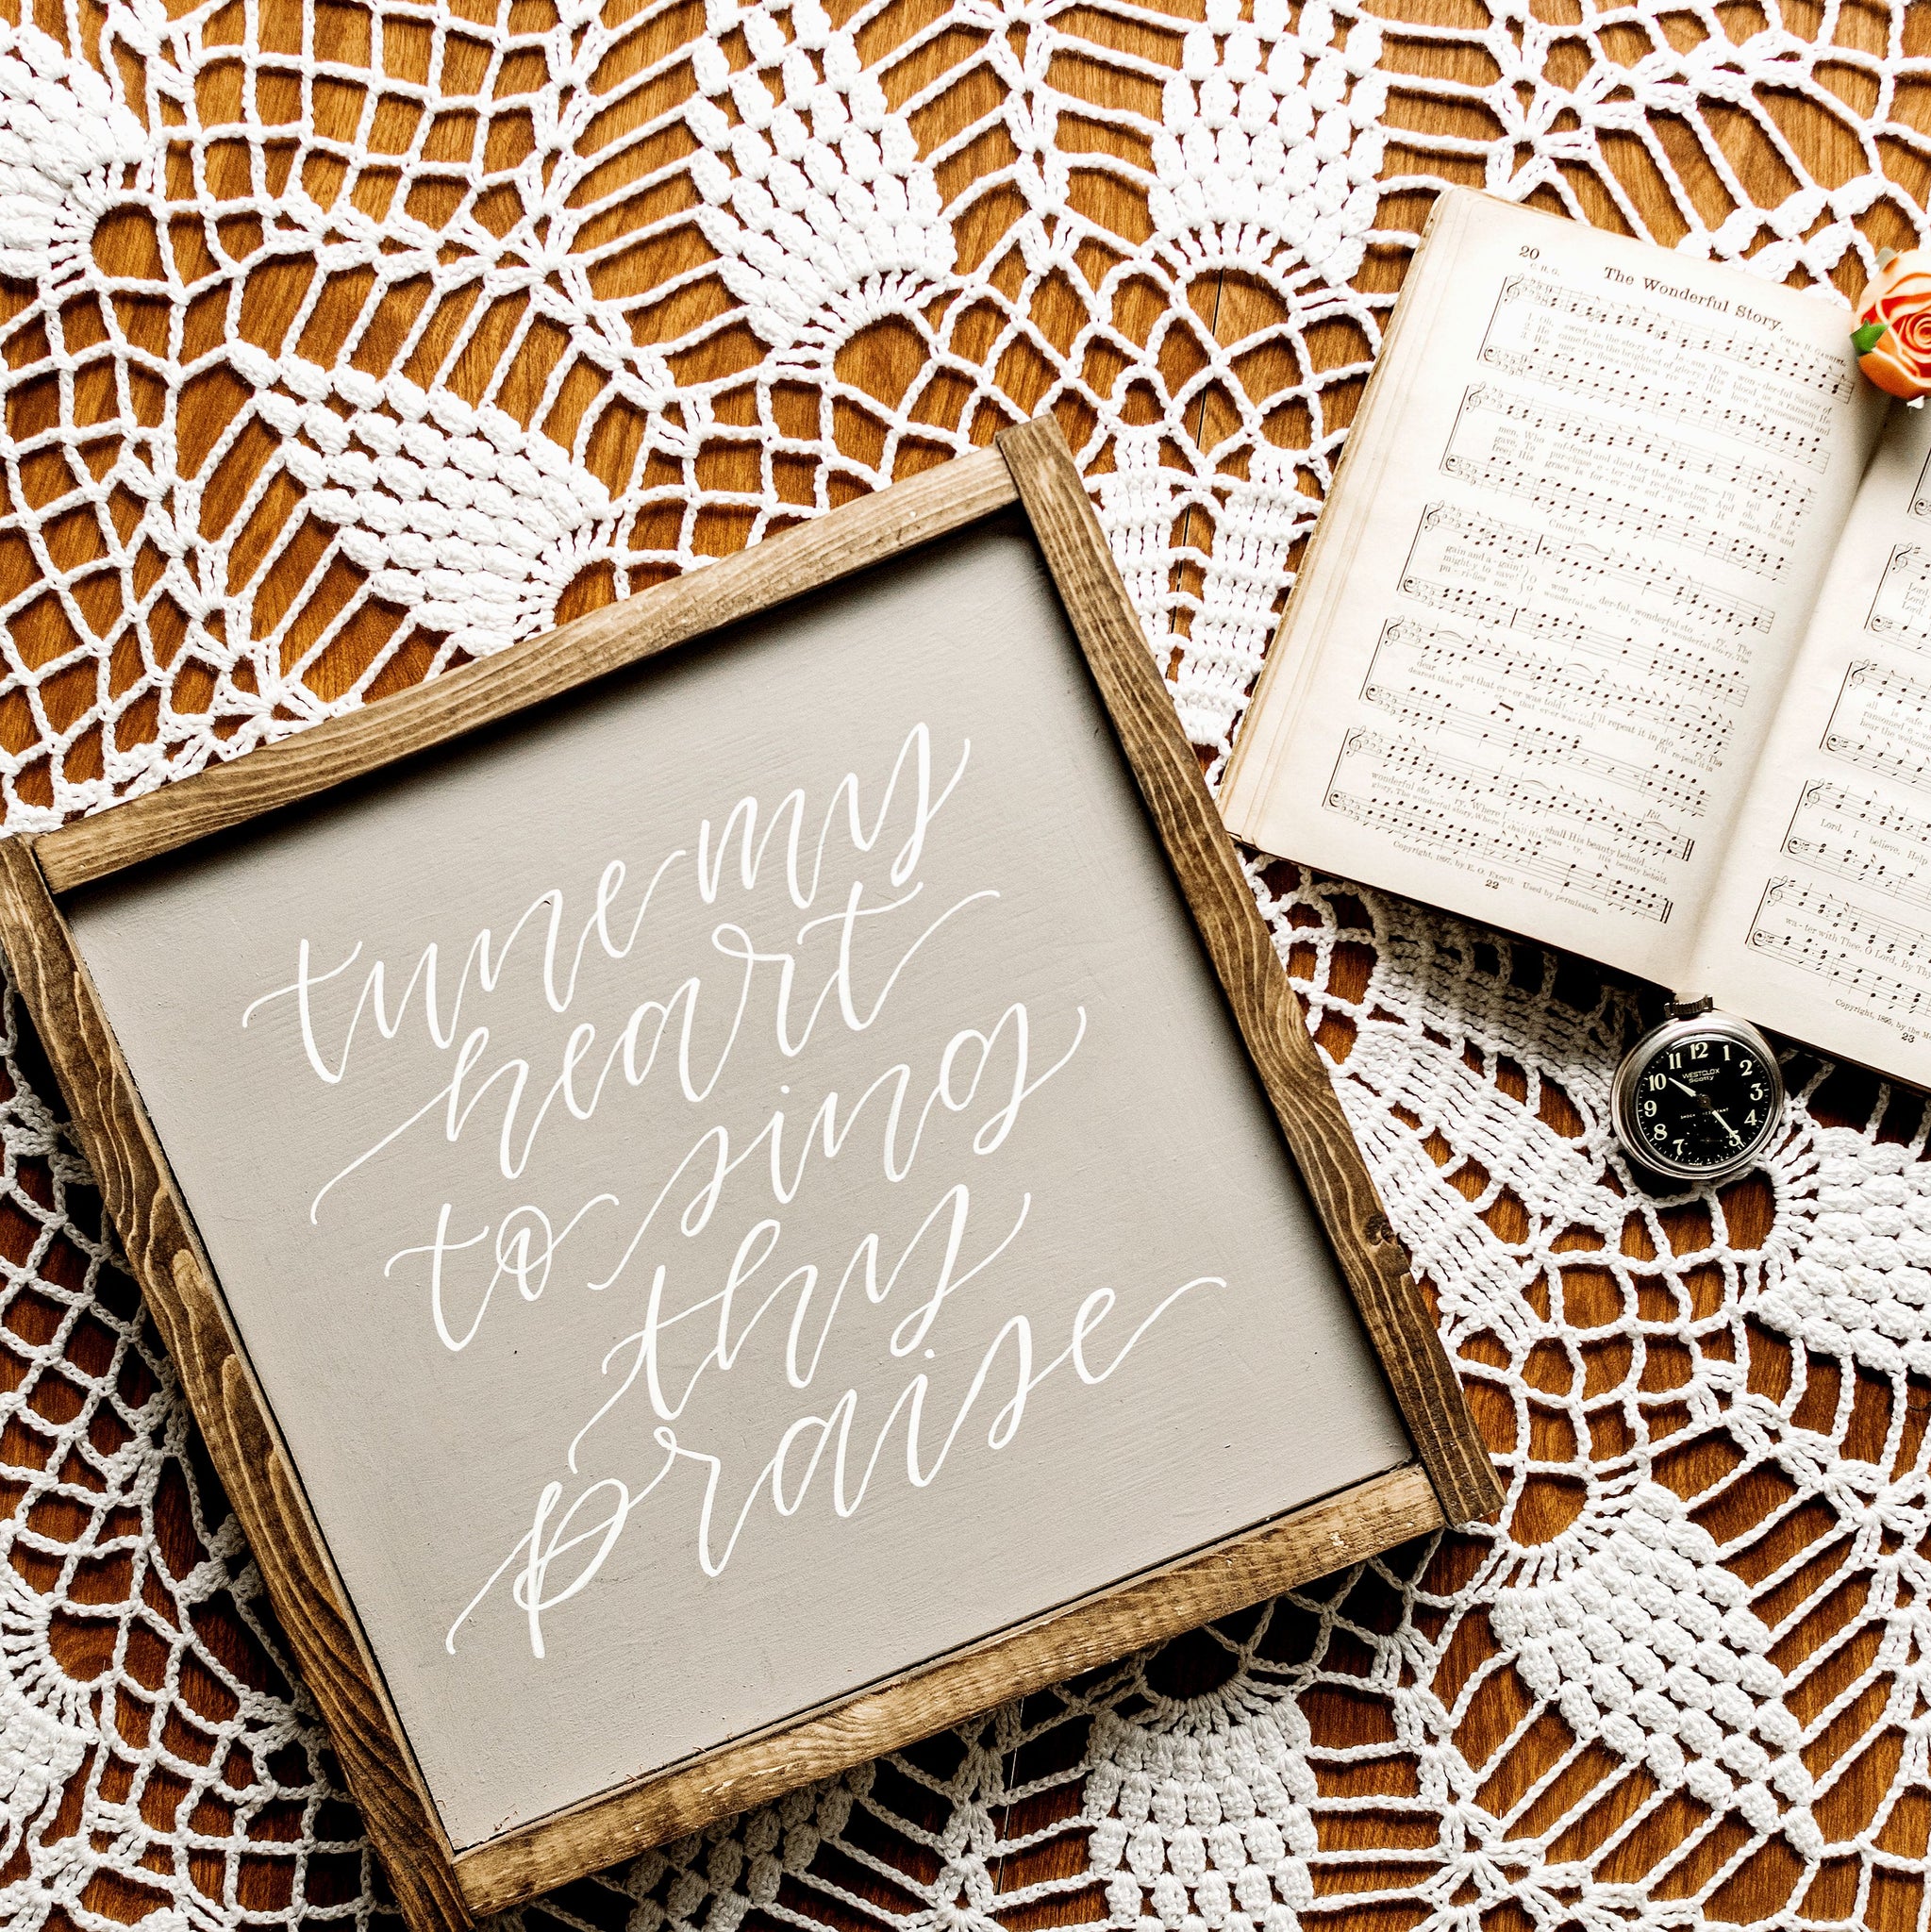 tune my
heart
to sing
thy
praise
20
The Wonderful Story.
C. H. G.
CHAS. H. GABRIEL.
1. Oh, sweet is the story of Jesus, The won - der-ful Savior of
2. He came from the brightest of glory, His blood as a ransom He
3. His mercy flows like a riv - er, His love is unmeasured and
men, Who suffered and died for the sin - ner, I'll tell it a-
gave, To purchase e - ter - nal redemption, And He is
free; His grace is for-ev - er suf - fi - cient, It reach-es and
CHORUS.
gain and a-gain!
might-y to save!
pu - ri-fies me.
O won - der-ful, wonderful sto - ry, The
O wonderful story, The
dear - est that ev-er was told! I'll repeat it in glo - ry, The
dearest that ev - er that ev-er was told! I'll re-peat it in
Rit.
wonderful sto - ry, Where I shall His beauty behold.
glory, The wonderful story, Where I shall His beau - ty, His beauty behold.
Copyright, 1897, by E. O. Excell. Used by permission.
22
all is safe
ransomed
hear the
Lord, I believe, Help
wa - ter with Thee, O Lord, By Thy
Copyright, 1895, by the
23
WESTCLOX
Scotty
SHOCK RESISTANT
12
1
2
3
4
5
7
8
9
10
11